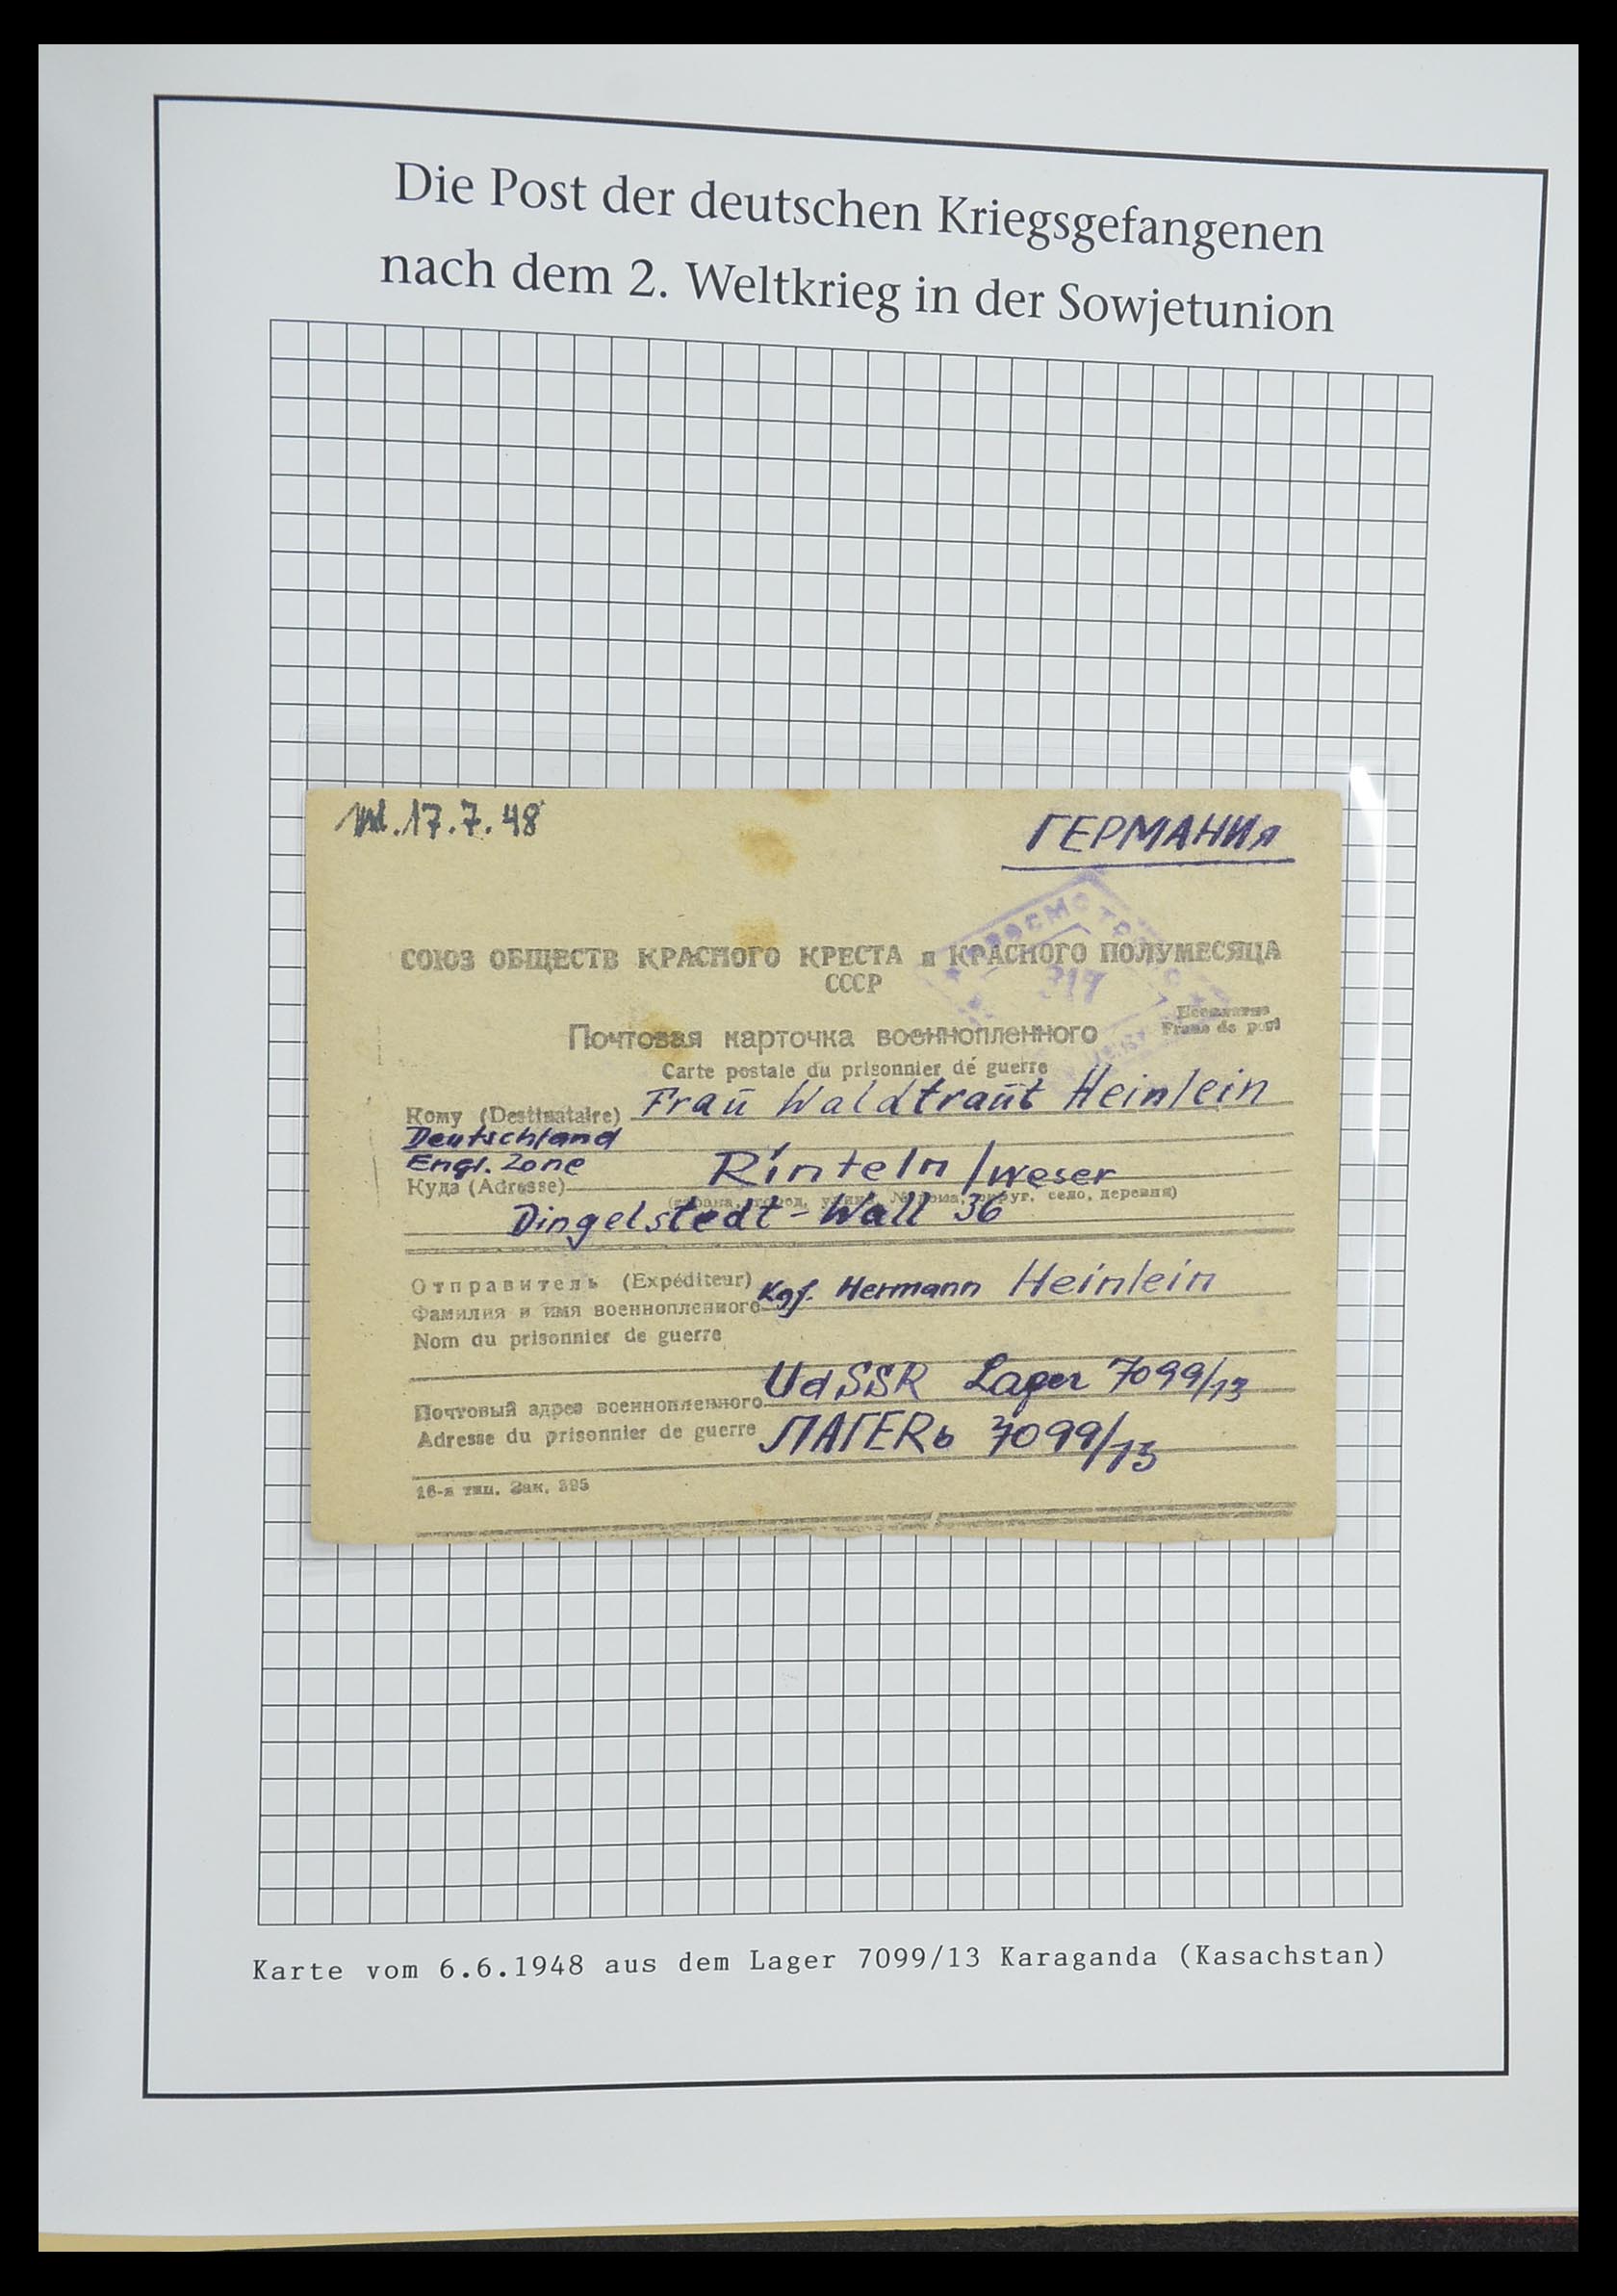 Die Post der deutschen Kriegsgefangenen
nach dem 2. Weltkrieg in der Sowjetunion
17.7.48
ГЕРМАНИЯ
СОЮЗ ОБЩЕСТВ КРАСНОГО КРЕСТА и КРАСНОГО ПОЛУМЕСЯЦА
СССР
Бесплатно
Franc de port
Почтовая карточка военнопленного
Carte postale du prisonnier de guerre
Кому (Destinataire) Fraŭ Waldtraŭt Heinlein
Deutschland
Engl. Zone
Куда (Adresse) Rinteln/Weser
(страна, город, улица, № дома, округ, село, деревня)
Dingelstedt-Wall 36
Отправитель (Expéditeur)
Фамилия и имя военнопленного Kgf. Hermann Heinlein
Nom du prisonnier de guerre
UdSSR Lager 7099/13
Почтовый адрес военнопленного
Adresse du prisonnier de guerre ЛАГЕRЬ 7099/13
16-я тип. Зак. 395
Karte vom 6.6.1948 aus dem Lager 7099/13 Karaganda (Kasachstan)